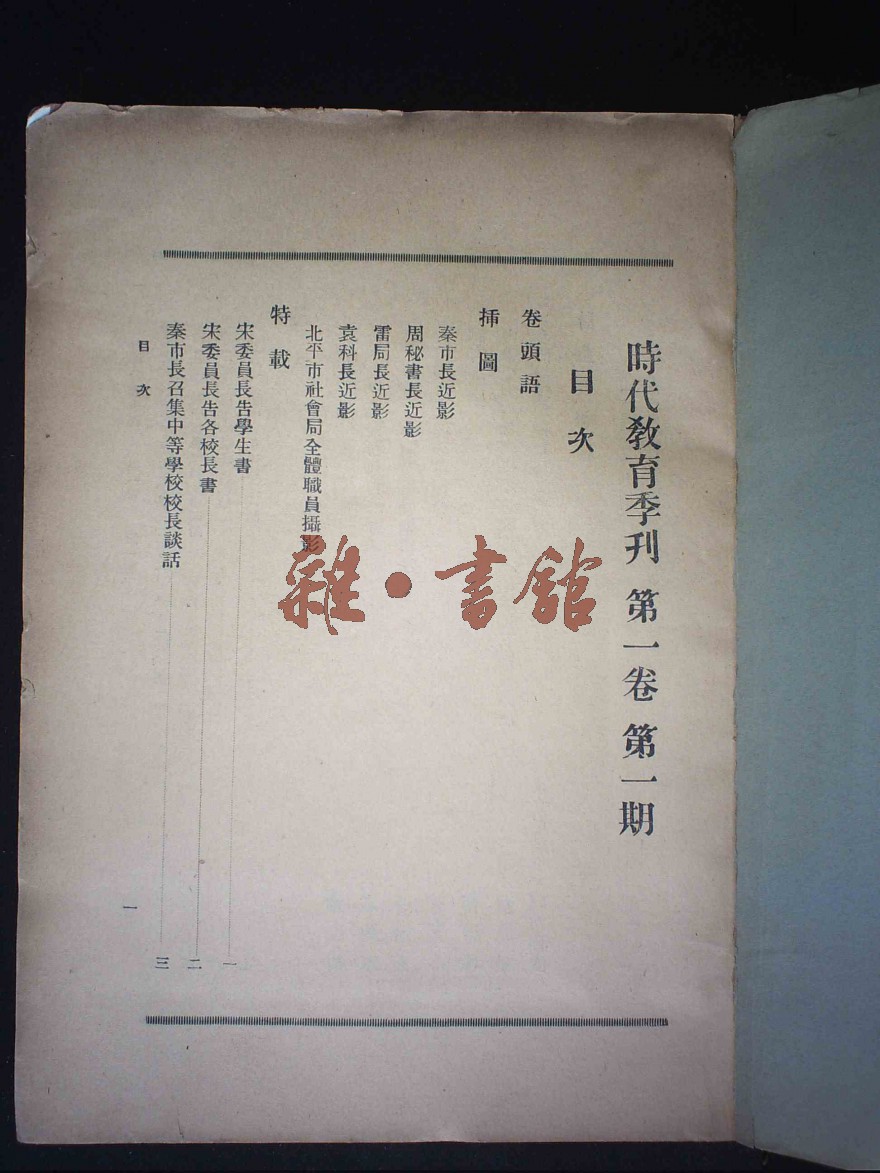 時代教育季刊 第一卷 第一期
目次
卷頭語
挿圖
秦市長近影
周秘書長近影
雷局長近影
袁科長近影
北平市社會局全體職員攝影
特載
宋委員長告學生書 一
宋委員長告各校長書 二
秦市長召集中等學校校長談話 三
目次
一
雜·書館